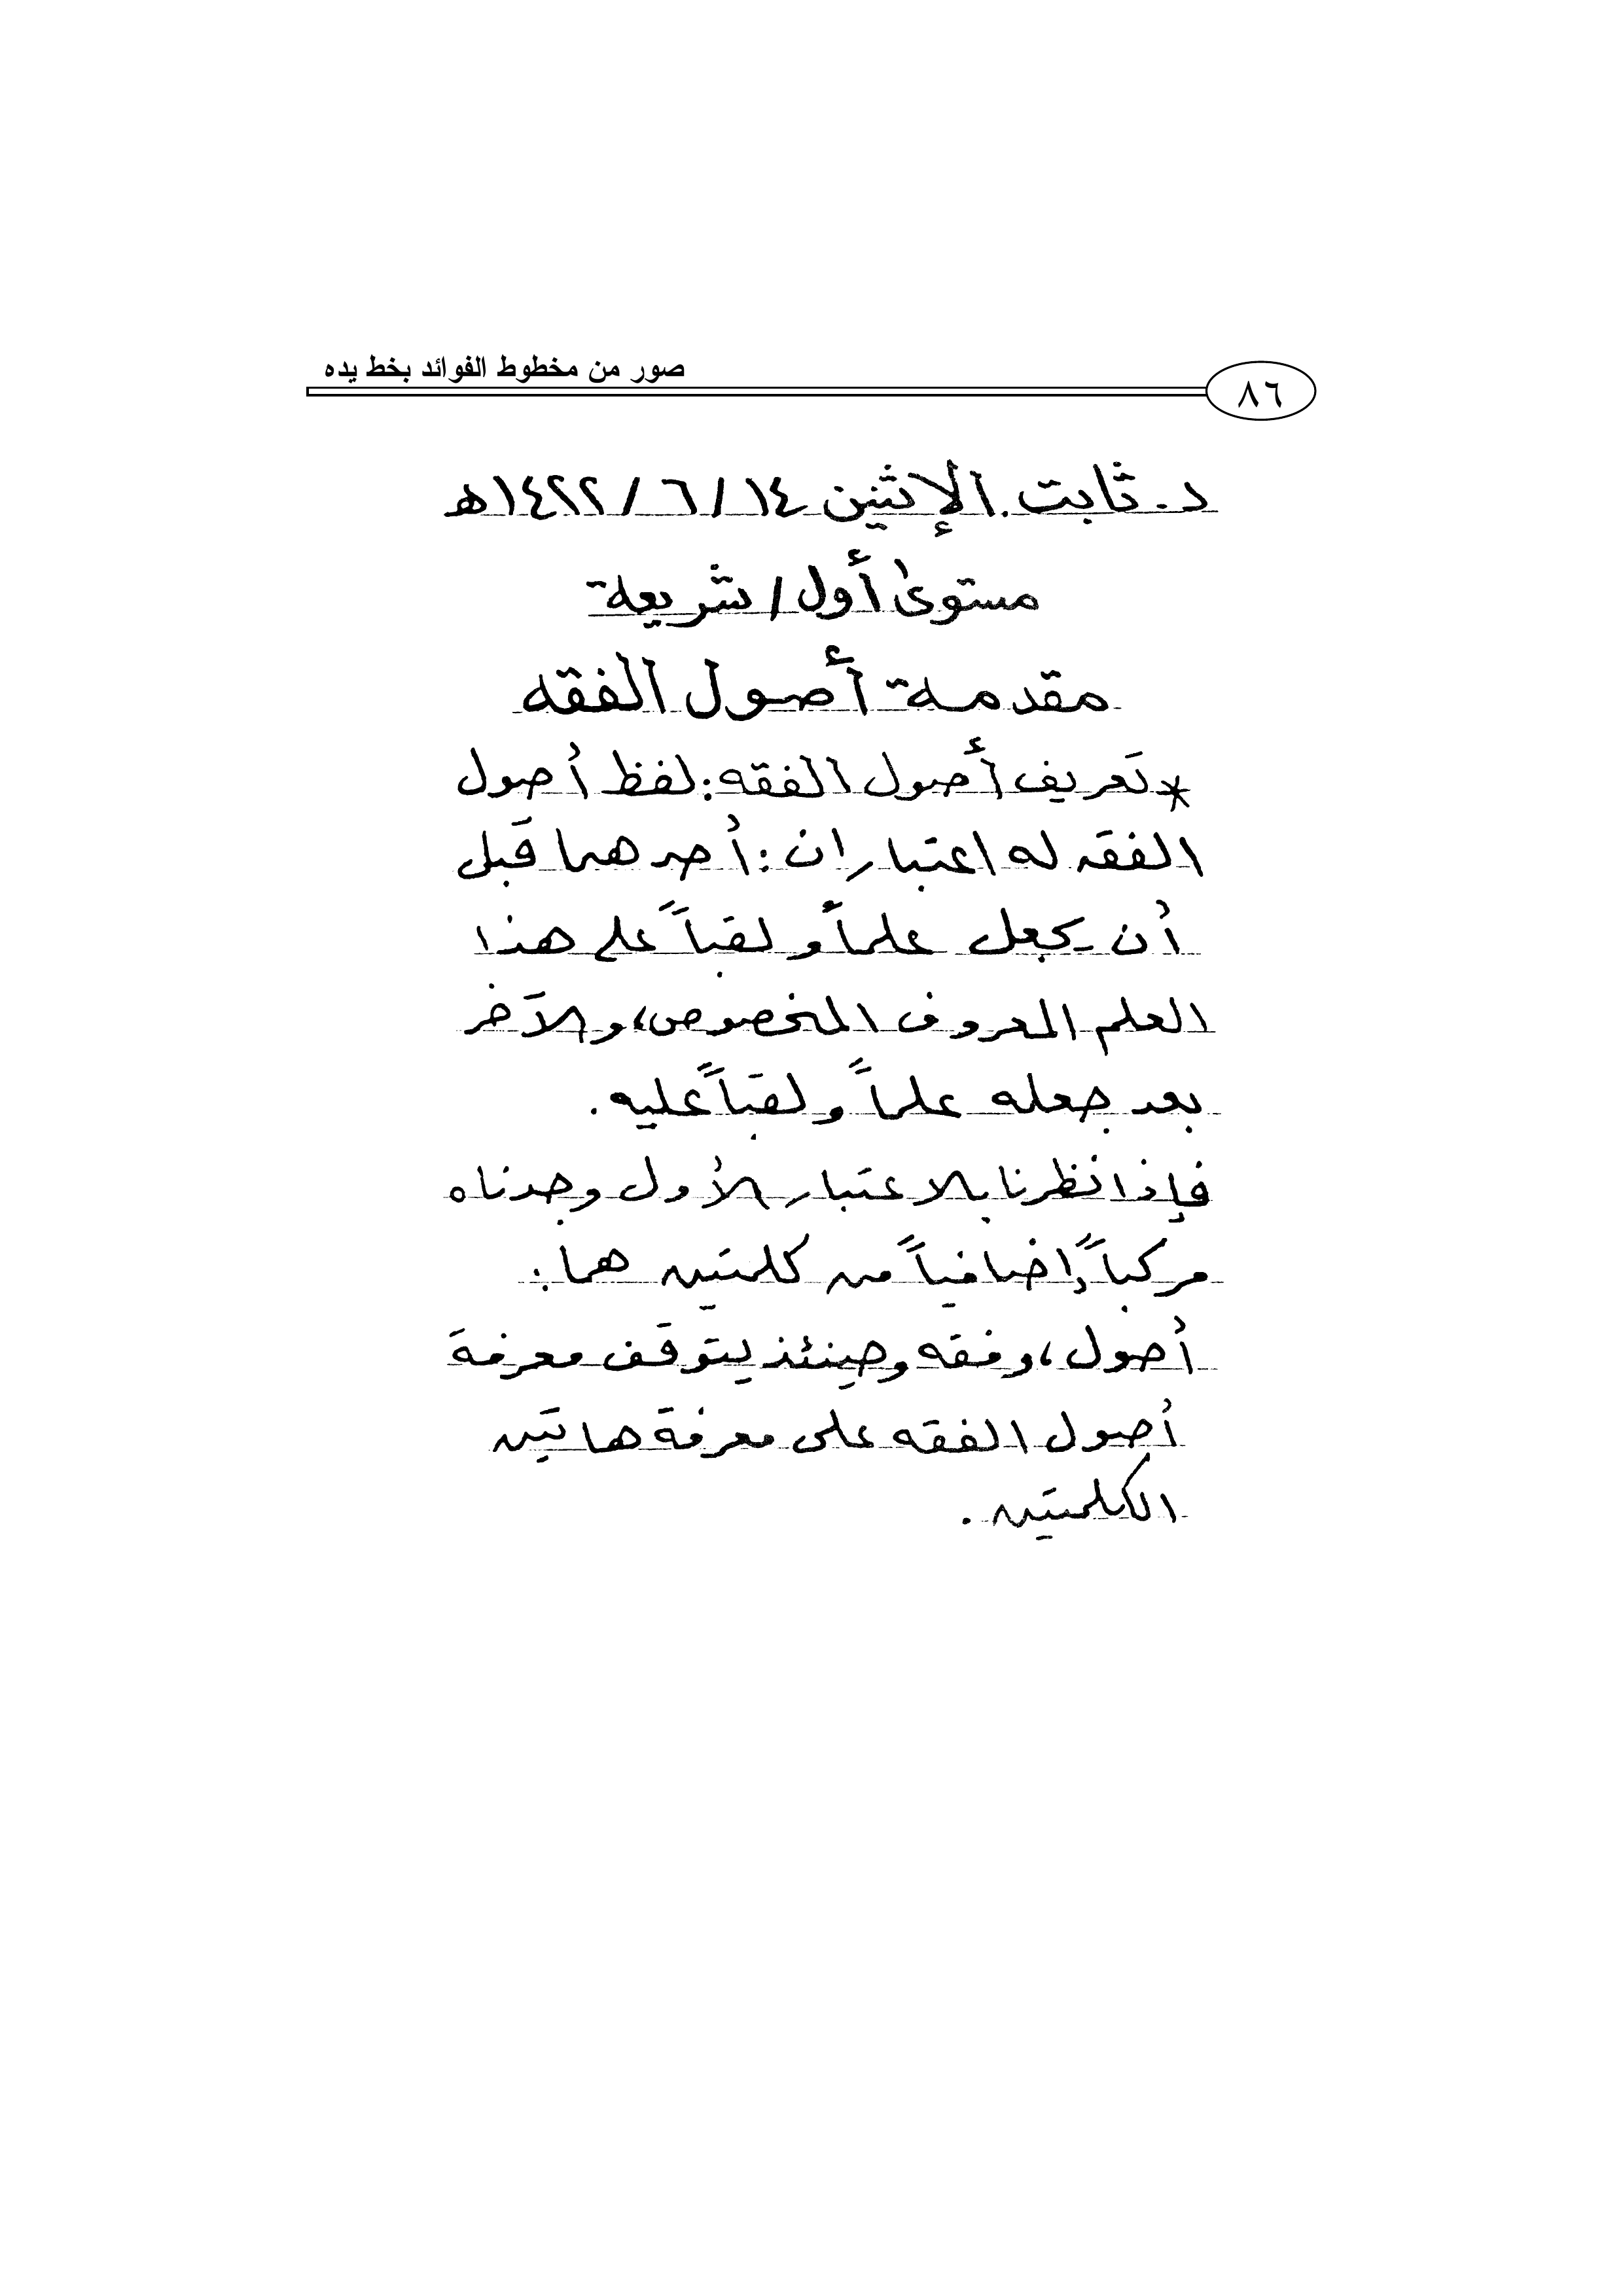 صور من مخطوط الفوائد بخط يده
٨٦
د. ثابت. الإثنين ١٤ / ٦ / ١٤٢٢هـ
مستوى أول / شريعة
مقدمة أصول الفقه
* تعريف أصول الفقه: لفظ أصول
الفقه له اعتباران: أحدهما قبل
أن يجعل علماً ولقباً على هذا
العلم المعروف المخصوص، والآخر
بعد جعله علماً ولقباً عليه.
فإذا نظرنا بالاعتبار الأول وجدناه
مركباً إضافياً من كلمتين هما:
أصول، وفقه وحينئذ يتوقف معرفة
أصول الفقه على معرفة هاتين
الكلمتين.